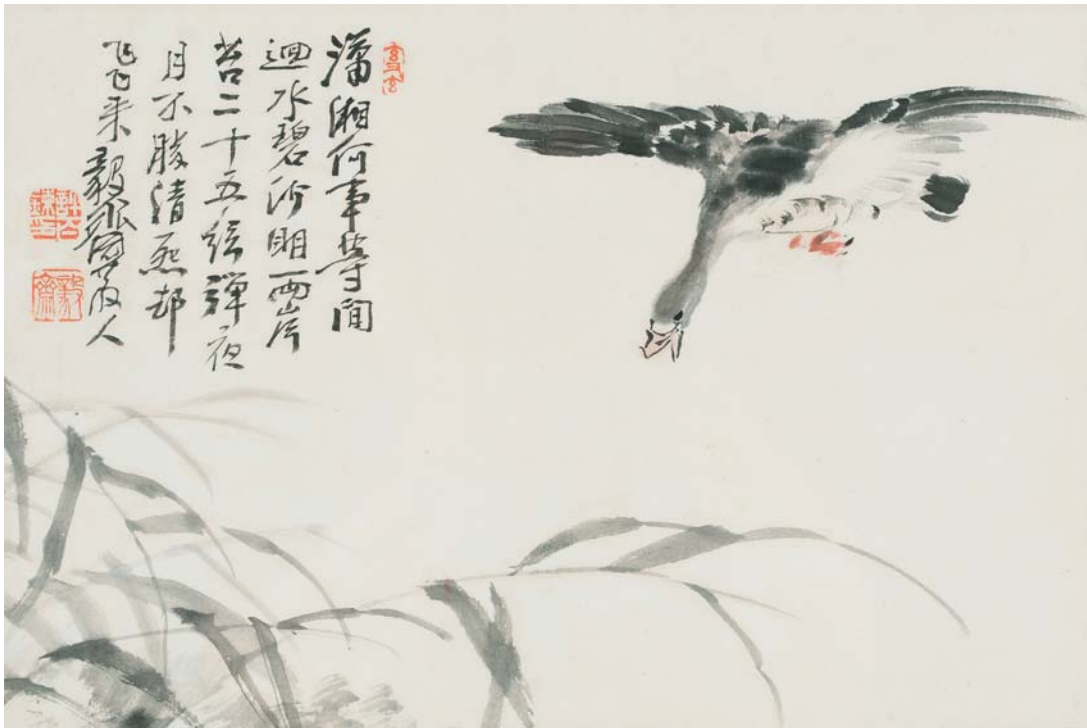 瀟湘何事等閒
迴水碧沙明兩岸
苔二十五絃彈夜
月不勝清怨却
飛来 毅齋
毅齋